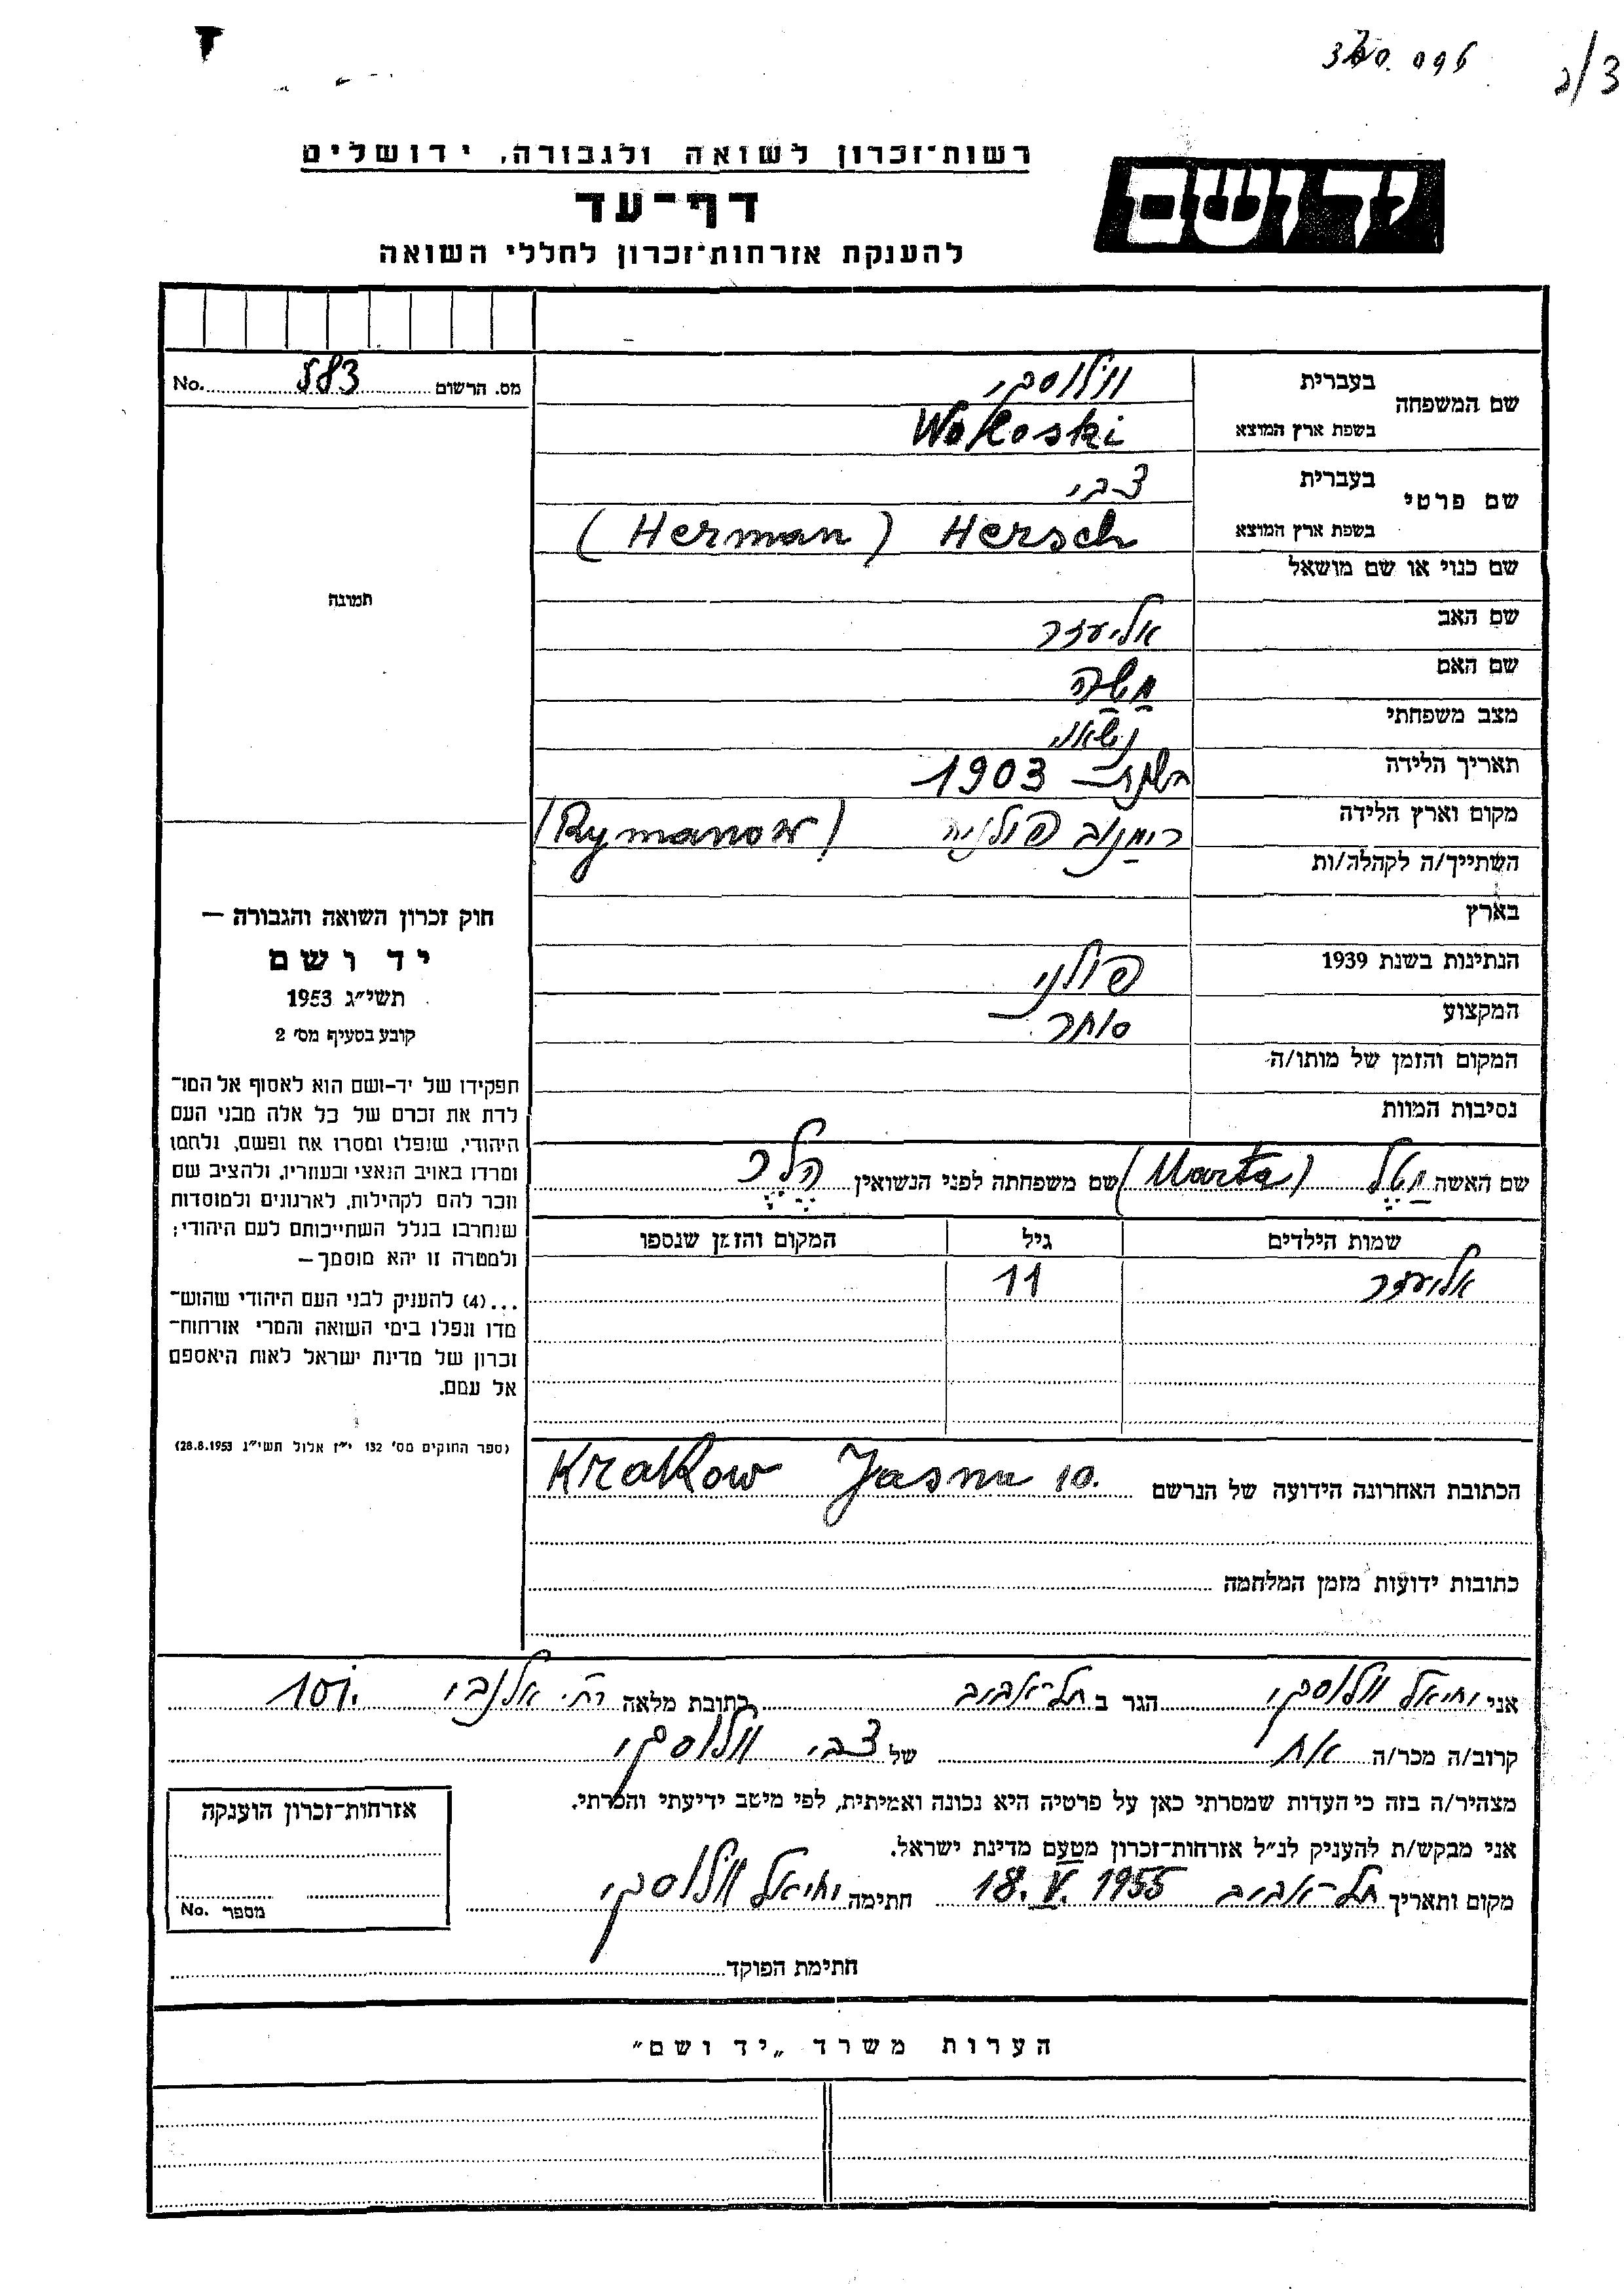 2/3
יד ושם
רשות־זכרון לשואה ולגבורה, ירושלים
דף־עד
להענקת אזרחות־זכרון לחללי השואה
מס. הרשום 583 No.
שם המשפחה
בעברית וולוסקי
בשפת ארץ המוצא Woloski
שם פרטי
בעברית צבי
בשפת ארץ המוצא Hersch (Herman)
שם כנוי או שם מושאל
תמונה
שם האב אליעזר
שם האם
מצב משפחתי נשאוי
תאריך הלידה בשנת 1903
מקום וארץ הלידה רימנוב פולניה (Rymanow)
השתייך/ה לקהלה/ות
בארץ
הנתינות בשנת 1939 פולני
המקצוע סוחר
המקום והזמן של מותו/ה
נסיבות המוות
חוק זכרון השואה והגבורה —
יד ושם
תשי״ג 1953
קובע בסעיף מס׳ 2
תפקידו של יד-ושם הוא לאסוף אל המו־
לדת את זכרם של כל אלה מבני העם
היהודי, שנפלו ומסרו את נפשם, נלחמו
ומרדו באויב הנאצי ובעוזריו, ולהציב שם
וזכר להם לקהילות, לארגונים ולמוסדות
שנחרבו בגלל השתייכותם לעם היהודי;
ולמטרה זו יהא מוסמך—
...(4) להעניק לבני העם היהודי שהוש־
מדו ונפלו בימי השואה והמרי אזרחות־
זכרון של מדינת ישראל לאות היאספם
אל עמם.
(ספר החוקים מס׳ 132 י״ז אלול תשי״ג 28.8.1953)
שם האשה (Marta) שם משפחתה לפני הנשואין
שמות הילדים גיל המקום והזמן שנספו
אליעזר 11
הכתובת האחרונה הידועה של הנרשם Krakow Jasna 10.
כתובות ידועות מזמן המלחמה
אני יחיאל וולוסקי הגר ב תל-אביב כתובת מלאה רח׳ אלנבי 101.
קרוב/ה מכר/ה אח של צבי וולוסקי
מצהיר/ה בזה כי העדות שמסרתי כאן על פרטיה היא נכונה ואמיתית, לפי מיטב ידיעתי והכרתי.
אני מבקש/ת להעניק לנ״ל אזרחות־זכרון מטעם מדינת ישראל.
מקום ותאריך תל-אביב 18.V.1955 חתימה יחיאל וולוסקי
אזרחות־זכרון הוענקה
מספר No.
חתימת הפוקד
הערות משרד „יד ושם״